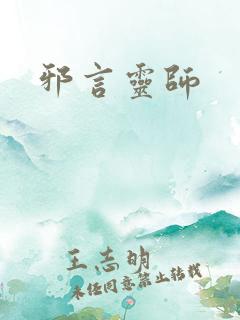 邪言靈師
王志明
未经同意禁止转载